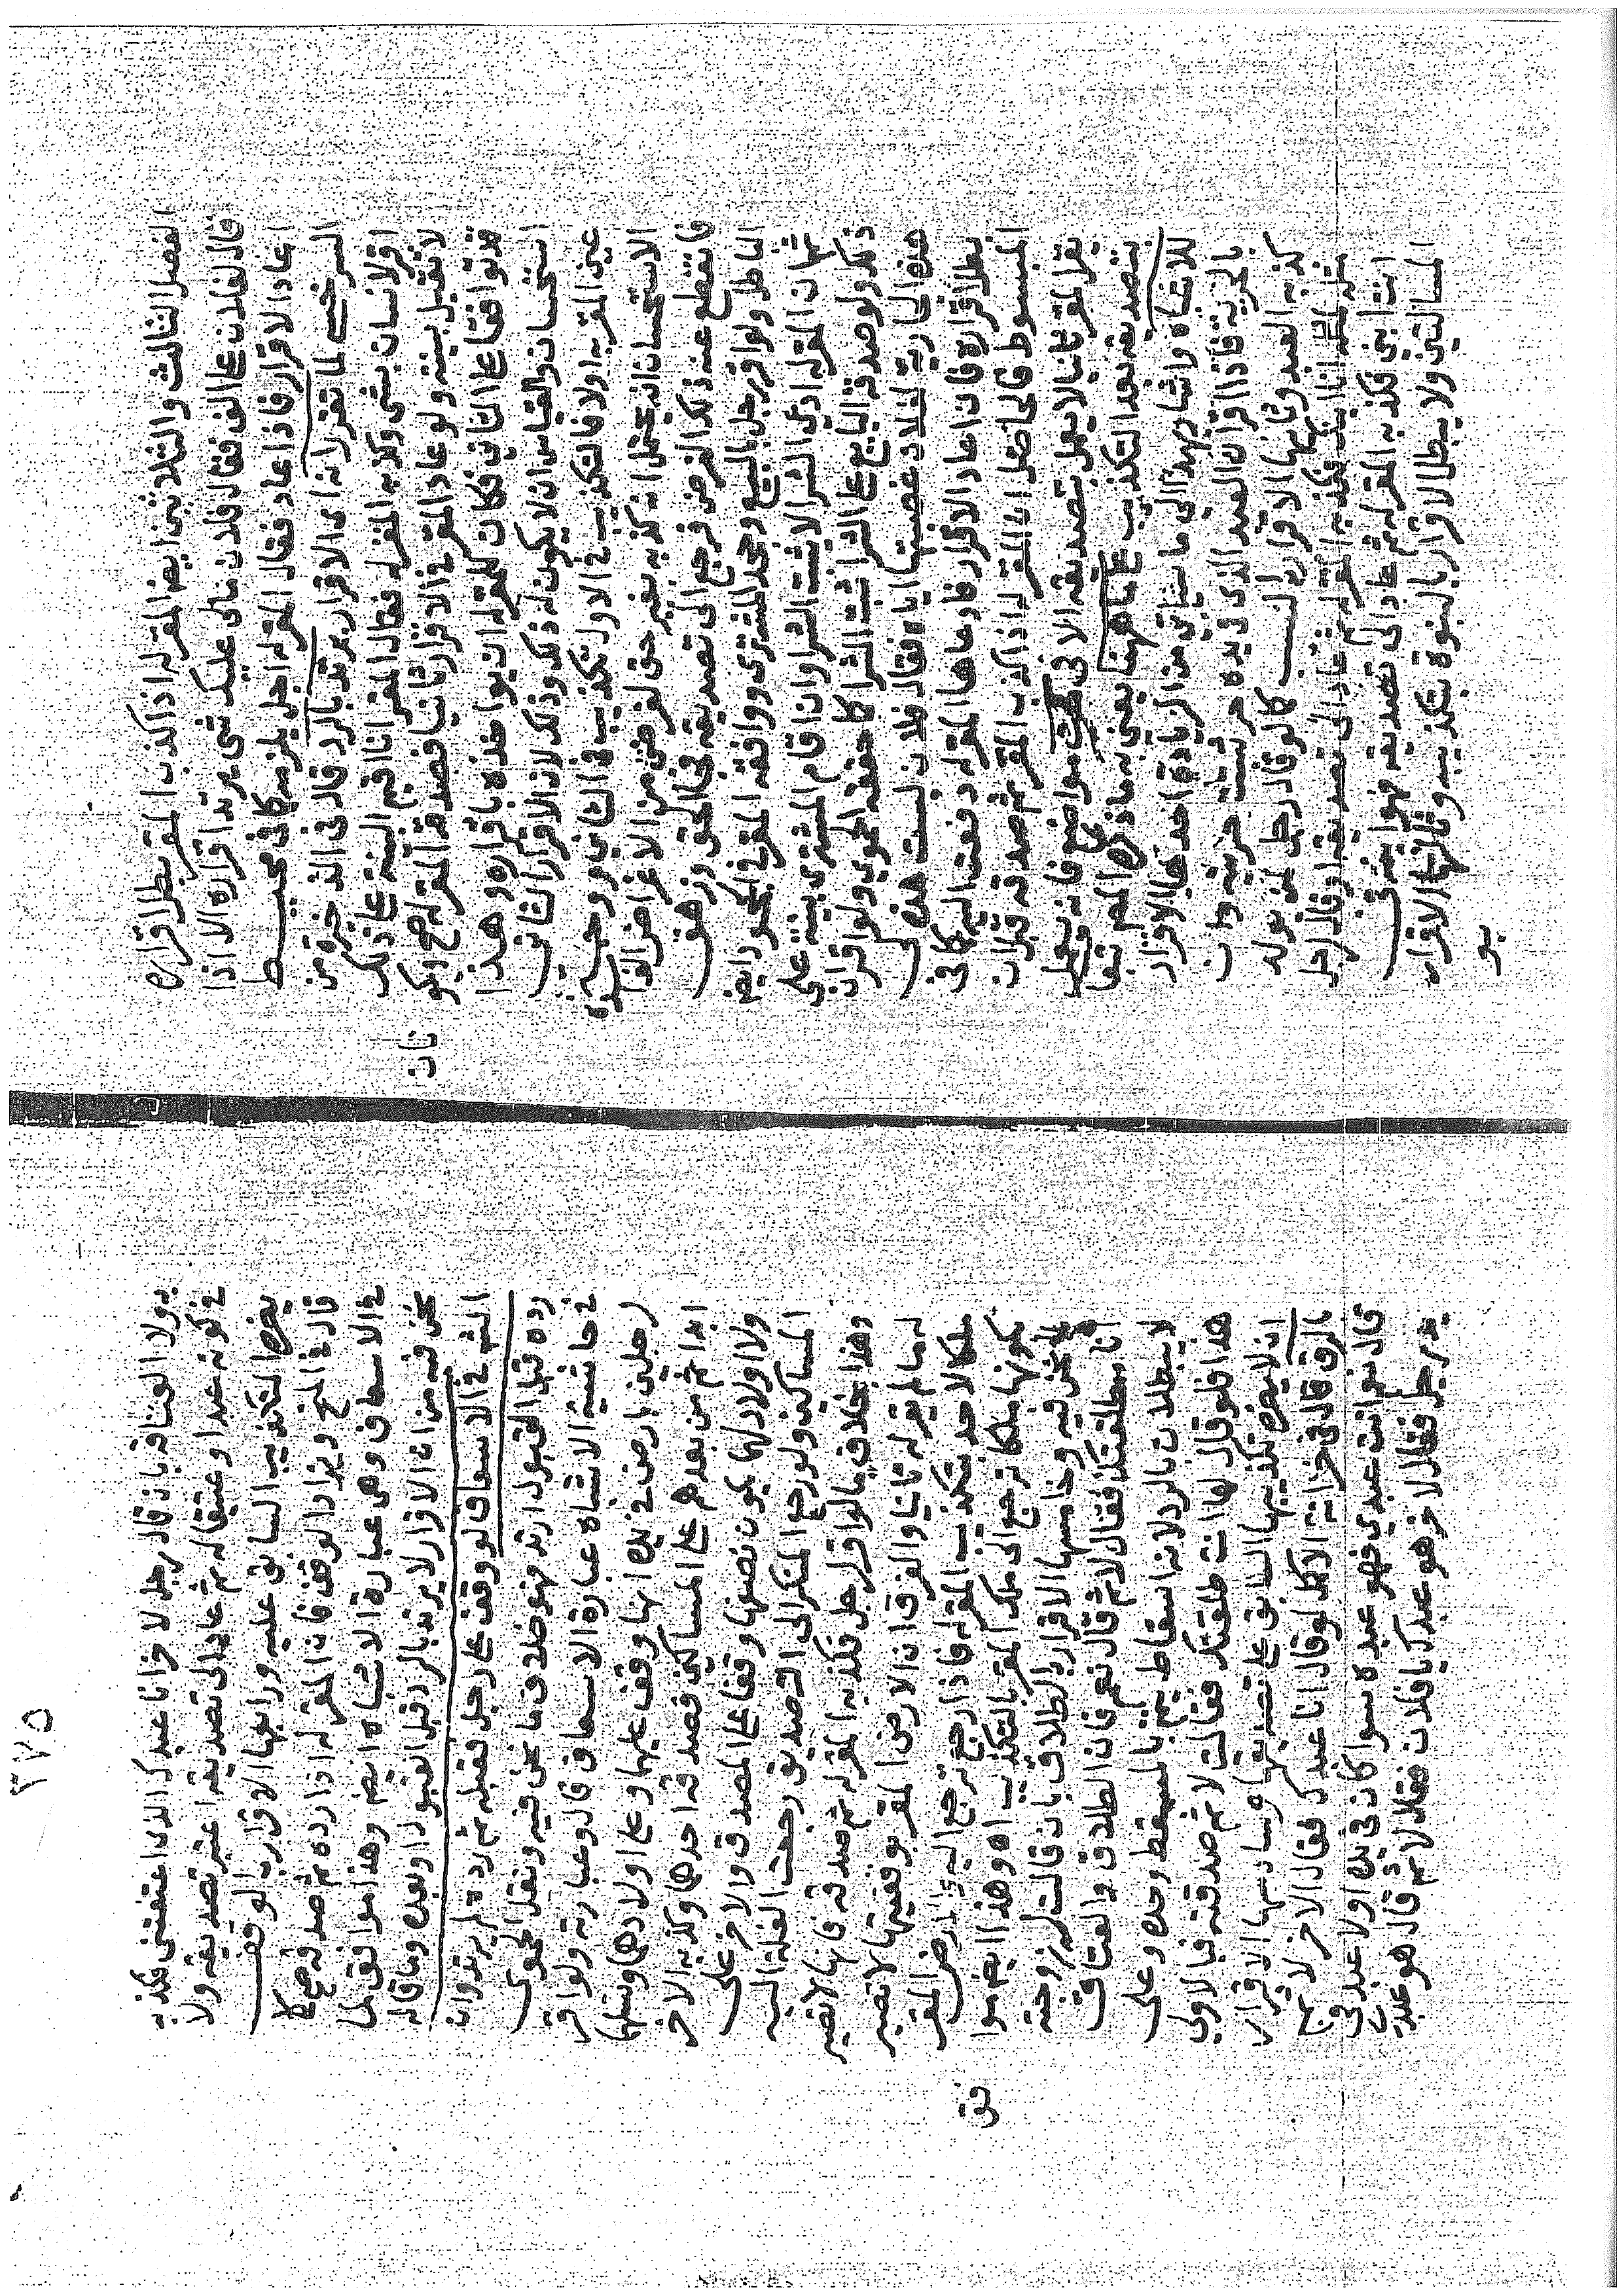 الفصل الثالث والثلاثين ايضا المقر له اذا كذب المقر بطل اقراره
قال لفلان على الف فقال فلان مالى عليك شئ يرتد اقراره الا اذا
اعاد الاقرار فاذا عاد فقال المقر له اجل يلزمه كما فى محيط
السرخسى لما تقرر لانه اى الاقرار يرتد بالرد قال فى الذخيرة من
اقر لانسان بشئ وكذبه المقر له فقال المقر انا اقيم البينة على ذلك
لا تقبل بينته ولو عاد المقر فى الاقرار ثانيا فصدقه المقر له صح وكو
نان
قد توافقا على الثانى فكان للمقر له ان يواخذه باقراره وهذا
استحسان والقياس ان لا يكون له ذلك وذلك لان الاقرار الثانى
عين المقر به اولا فالتكذيب فى الاول تكذيب فى الثانى ووجه
الاستحسان انه يحتمل انه كذبه بغير حق لغرض من الاغراض الفاسدة
فانقطع عنه ذلك الغرض فرجع الى تصديقه فجاء الحق وزهق
الباطل ولو اقر رجل بالبيع وجحد المشترى ووافقه المقر فى الجحود ايضا
ثم ان المقر له ادعى الشرا لا يثبت الشرا وان اقام المشترى بينة على
ذلك ولو صدقه البايع على الشرا ثبت الشرا كما حققه الحموى ولو اقر ان
هذه الجارية لفلان غصبتها اياه فقال فلان ليست هذه لى
بطل اقراره فان اعاد الاقرار فادعاها المقر له دفعت اليه كما فى
المبسوط فالحاصل ان المقر له اذا كذب المقر ثم صدقه قبل ان
يقر المقر ثانيا لا يعمل تصديقه الا فى ست مواضع فانه يعمل
بتصديقه بعد التكذيب على ما ههنا يعنى به ما ذكره المص تبعا
للاشباه واشار بهذا الى ما سياتى من الزيادة احدها الاقرار
بالحرية فاذا اقر ان العبد الذى فى يده حر تثبت حريته وان
كذبه العبد وثانيها الاقرار بالنسب كالو قال رجل لمن يولد
مثله لمثله انا ابنك فكذبه المقر له ثم عاد الى تصديقه او قال لرجل
انت ابنى فكذبه المقر له ثم عاد الى تصديقه فهو ابنه فى
المسالتين ولا يبطل الاقرار بالبنوة بتكذيبه وثالثها الاقرار
بو
٢٧٥
بولاء العتاقة بان قال رجل لاخر انا عبدك الذى اعتقتنى فكذبه
فى كونه عبدا وعتيقا له ثم عاد الى تصديقه اعتبر تصديقه ولا
يضره التكذيب السابق عليه ورابعها الاقرار بالوقف
قال فى المنح ويزاد الوقف فان المقر له اذا رده ثم صدقه صح كما
فى الاسعاف وهى عبارة الاشباه ايضا وهذا موافق لما
نحن فيه من ان الاقرار لا يرتد بالرد قبل القبول او بعده وما قاله
الشه فى الاسعاف لو وقف على رجل فقبله ثم رده لم يرتد وان
رده قبل القبول ارتد فهو خلاف ما نحن فيه ونقل الحموى
فى حاشية الاشباه عبارة الاسعاف قال وعبارته ولو اقر
رجلين بارض فى يده انها وقف عليهما وعلى اولادهما ونسلهما
ابدا ثم من بعدهم على المساكين فصدقه احدهما وكذبه الاخر
ولا اولاد لهما يكون نصفها وقفا على المصدق والاخر على
المساكين ولو رجع المنكر الى التصديق رجعت الغلة اليه
وهذا بخلاف ما لو اقر لرجل فكذبه المقر له ثم صدقه فانها لا تصير
له ما لم يقر له ثانيا والفرق ان الارض المقر بوقفيتها لا تصير
ملكا لاحد بتكذيب المقر له فاذا رجع ترجع اليه والارض المقر
بكونها ملكا ترجع الى ملك المقر بالتكذيب اه وهذا ايضا موا
فق
لما نحن فيه وخامسها الاقرار بالطلاق بان قالت لزوجته
انا مطلقتك فقال لا ثم قال نعم فان الطلاق والعتاق
لا يبطلان بالرد لانه اسقاط يتم بالمسقط وحده وعلى
هذا فلو قال لها انت طلقتك فقالت لا ثم صدقته فبالاولى
انه لا يضر تكذيبها السابق على تصديقها وسادسها الاقرار
بالرق قال فى خزانة الاكمل لو قال انا عبدك فقال الاخر لا ثم
قال بل انت عبدى فهو عبده سوا كان فى يده اولا عبد فى
يد رجل فقال لاخر هو عبدك يا فلان فقال لا ثم قال هو عبدى